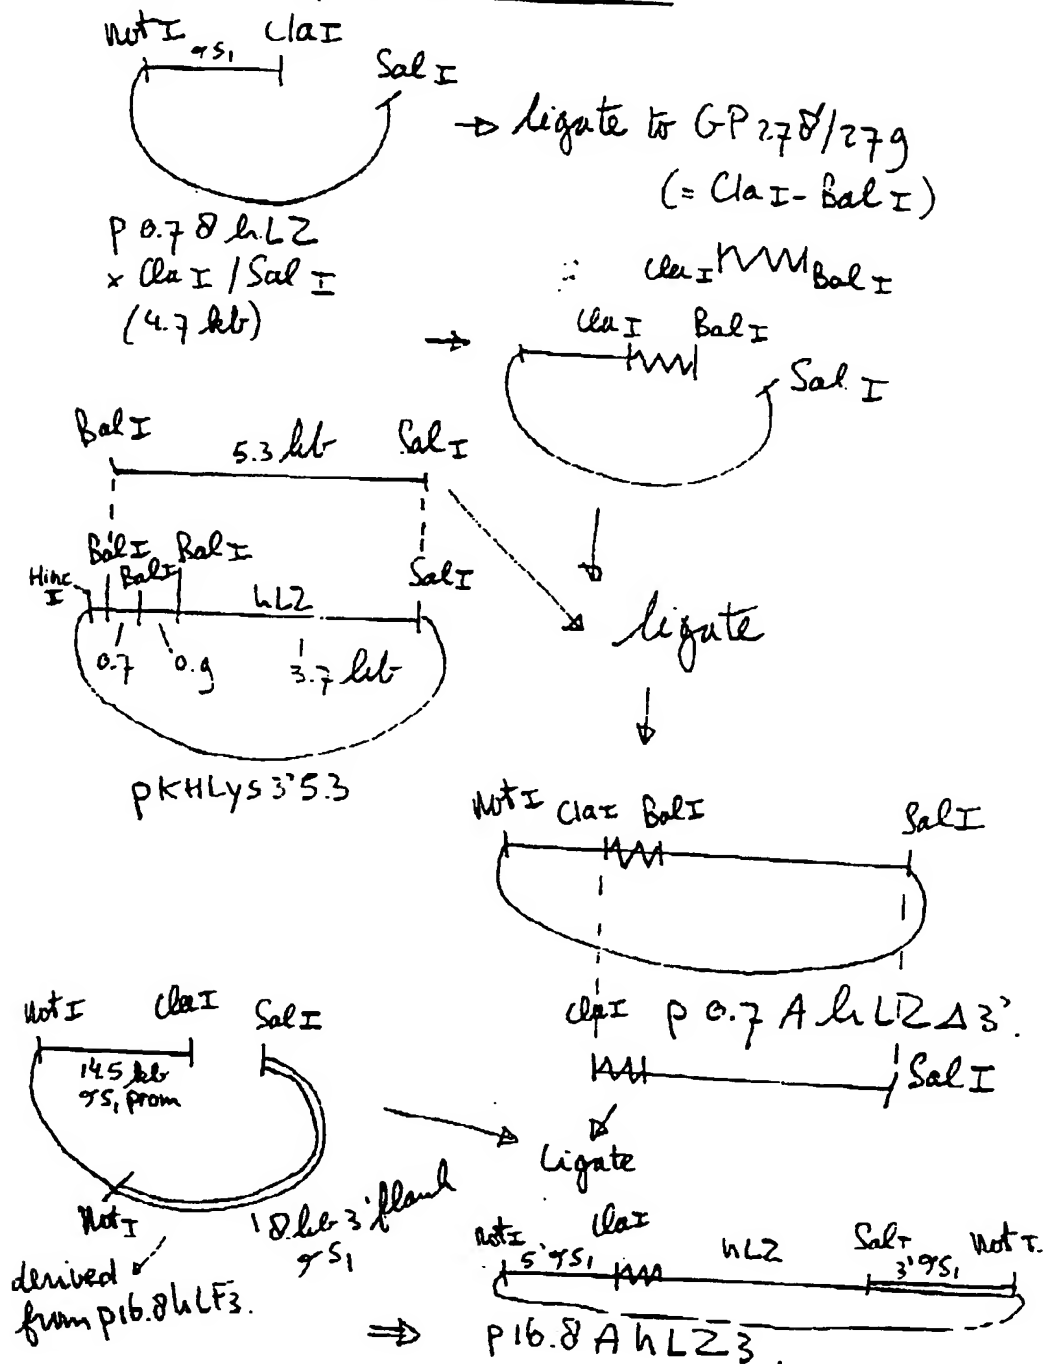 Not I ClaI
σS1
Sal I
→ ligate to GP 278/279
(= Cla I - Bal I)
p 0.7 8 hLZ
x Cla I / Sal I
(4.7 kb)
Cla I Bal I
Cla I Bal I
Sal I
Bal I 5.3 kb Sal I
Bal I Bal I
Hinc II Bal I hLZ Sal I
0.7 0.9 3.7 kb
pKHLys 3'5.3
ligate
Not I Cla I Bal I Sal I
p 0.7 A hLZ Δ 3'.
Cla I Sal I
Not I Cla I Sal I
14.5 kb
σS1 prom
Ligate
Not I
8 kb 3' flank
σS1
derived
from p16.8hLF3.
Not I Cla I hLZ Sal I Not I.
5' σS1 3' σS1
⇒ p16.8 A hLZ3.